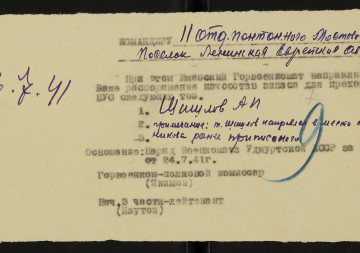 КОМАНДИРУ 11 отд. понтонного мостово
Поселок Ленинская Еврейская ав
5.7.41
При этом Ижевский Горвоенкомат направля
Ваше распоряжение начсостав запаса для прохо
КУО следующих тов.
1. Шишлов А П
2. примечание: т. Шишлов направлен вместо
3. ранее приписанного
9
Основание: Наряд Военкомата Удмуртской АССР за
от 24.7.41г.
Горвоенком-полковой комиссар
(Якимов)
Нач. 3 части-лейтенант
(Паутов)